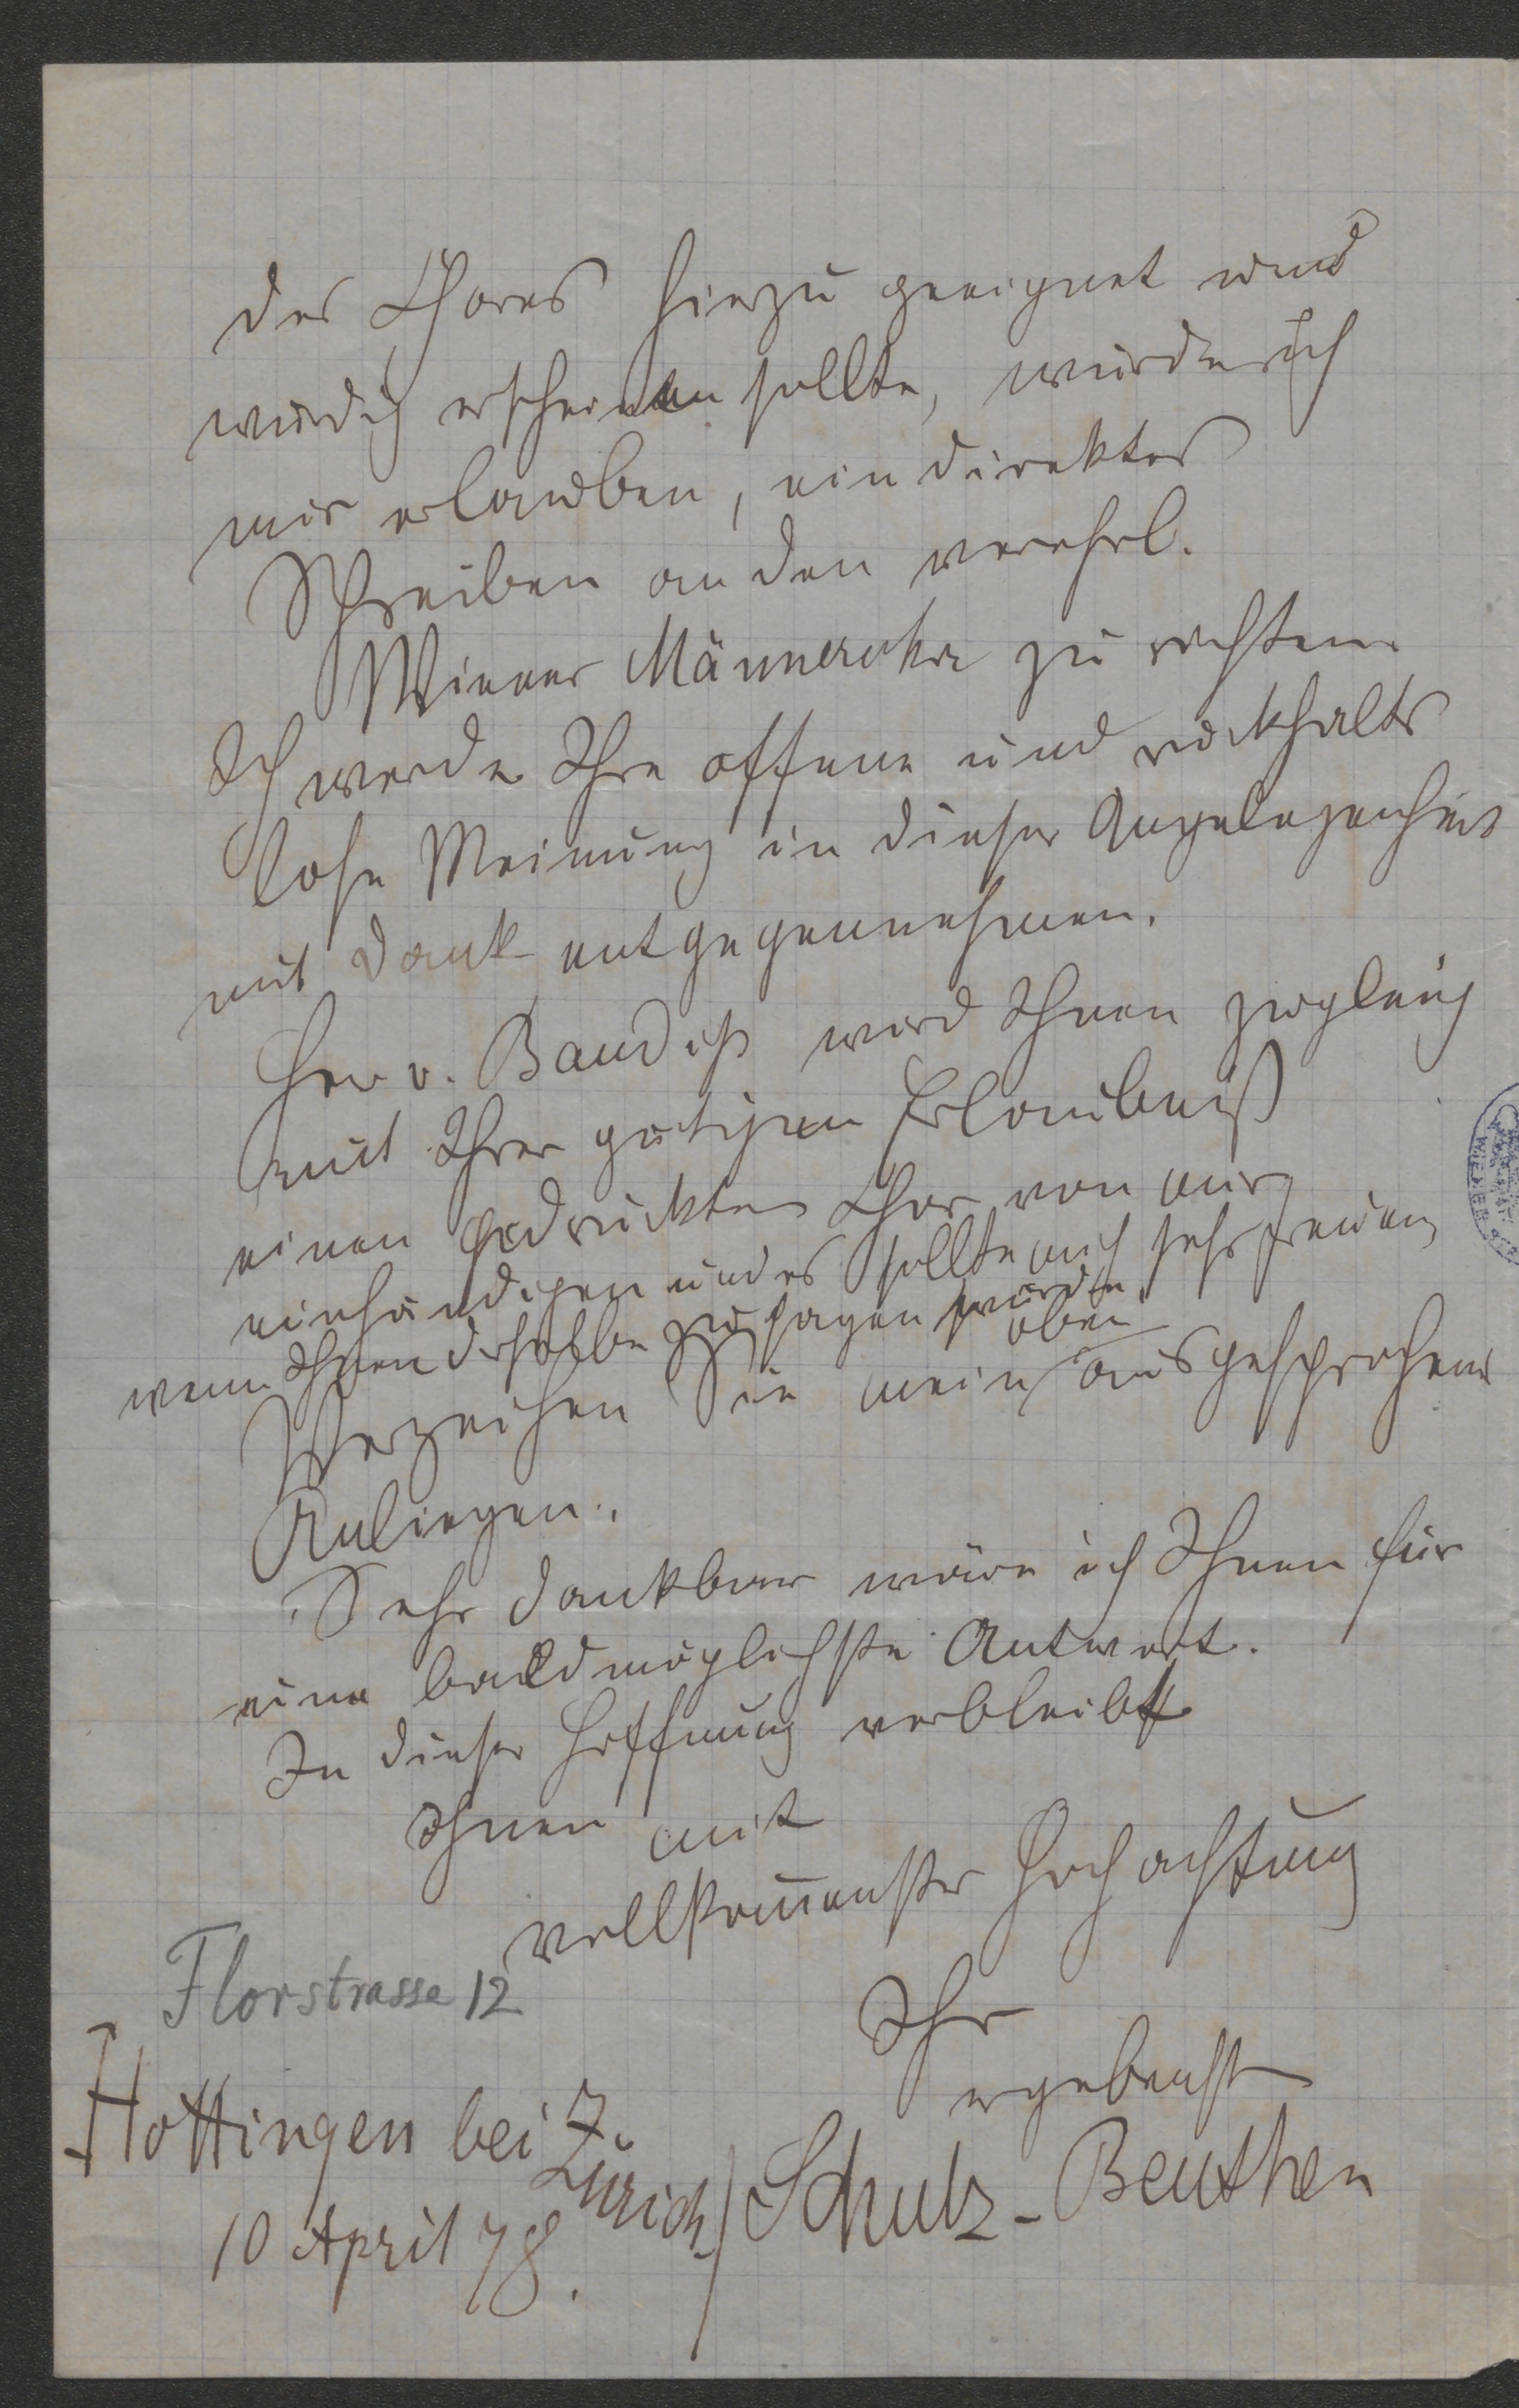 des Chores hiezu geeignet und
würdig erscheinen sollte, würde ich
mir erlauben, ein direktes
Schreiben an den verehrl.
Wiener Männerchor zu richten.
Ich werde Ihre offene und rückhalts
lose Meinung in dieser Angelegenheit
mit Dank entgegennehmen.
Herr v. Baudiß wird Ihnen zugleich
mit Ihrer gütigen Erlaubniß
einen gedruckten Chor von mir
einhändigen und es sollte mich sehr freuen,
wenn Ihnen derselbe zusagen würde.
oben
Verzeihen Sie mein ausgesprochenes
Anliegen.
Sehr dankbar wäre ich Ihnen für
eine baldmöglichste Antwort.
In dieser Hoffnung verbleibt
Ihnen mit
vollkom̅enster Hochachtung
Ihr
ergebenster
Florstrasse 12
Hottingen bei Z.
Zürich
Schulz-Beuthen
10 April 78.